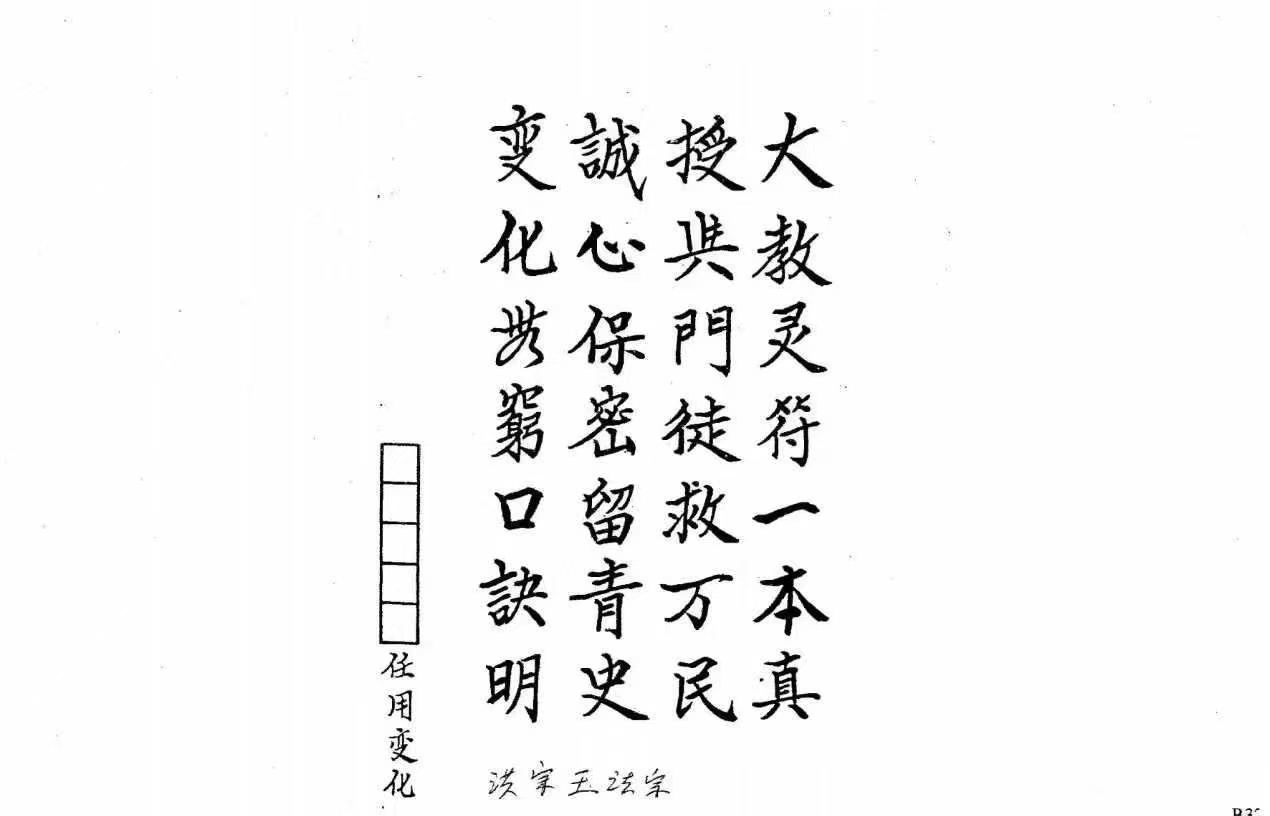 大教灵符一本真
授與門徒救万民
誠心保密留青史
变化無窮口訣明
任用变化
洪宗玉法宗